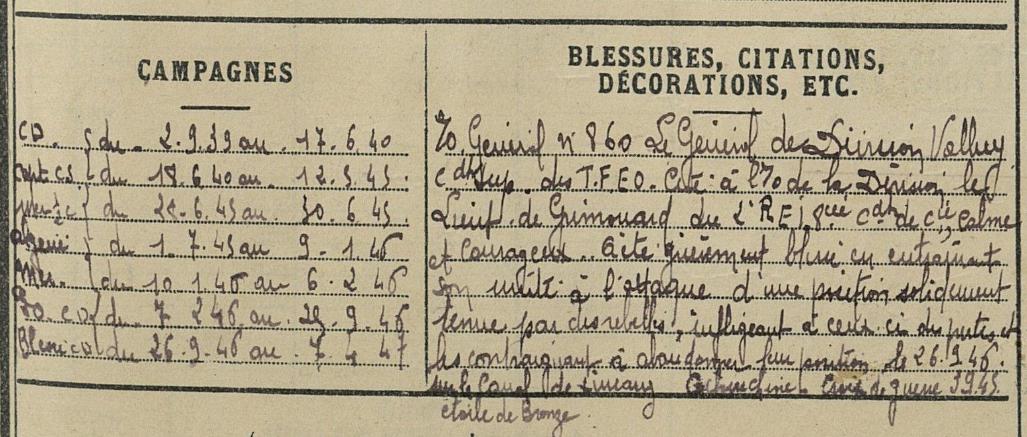 CAMPAGNES
CD. du 2.9.39 au 17.6.40
capt. CS. du 18.6.40 au 12.5.45.
du 28.6.45 au 30.6.45.
du 1.7.45 au 9.1.46
Mer. du 10.1.46 au 6.2.46
EO. CD du 7 2 46 au 25.9.46
Blessé CD du 26.9.46 au 7 4 47
BLESSURES, CITATIONS,
DÉCORATIONS, ETC.
Général n° 860 Le Général de Division Valluy
Cdt Sup. des T.F.E.O. Cite à l'O de la Division le
Lieut. de Grimouard du 2e R E I 8eme Cdt de Cie, Calme
et Courageux. A été grièvement blessé en entraînant
son unité à l'attaque d'une position solidement
tenue par des rebelles, infligeant à ceux ci des pertes et
les contraignant à abandonner leur position, le 26.9.46.
sur le Canal de Cochinchine Croix de guerre 39.45
étoile de Bronze.